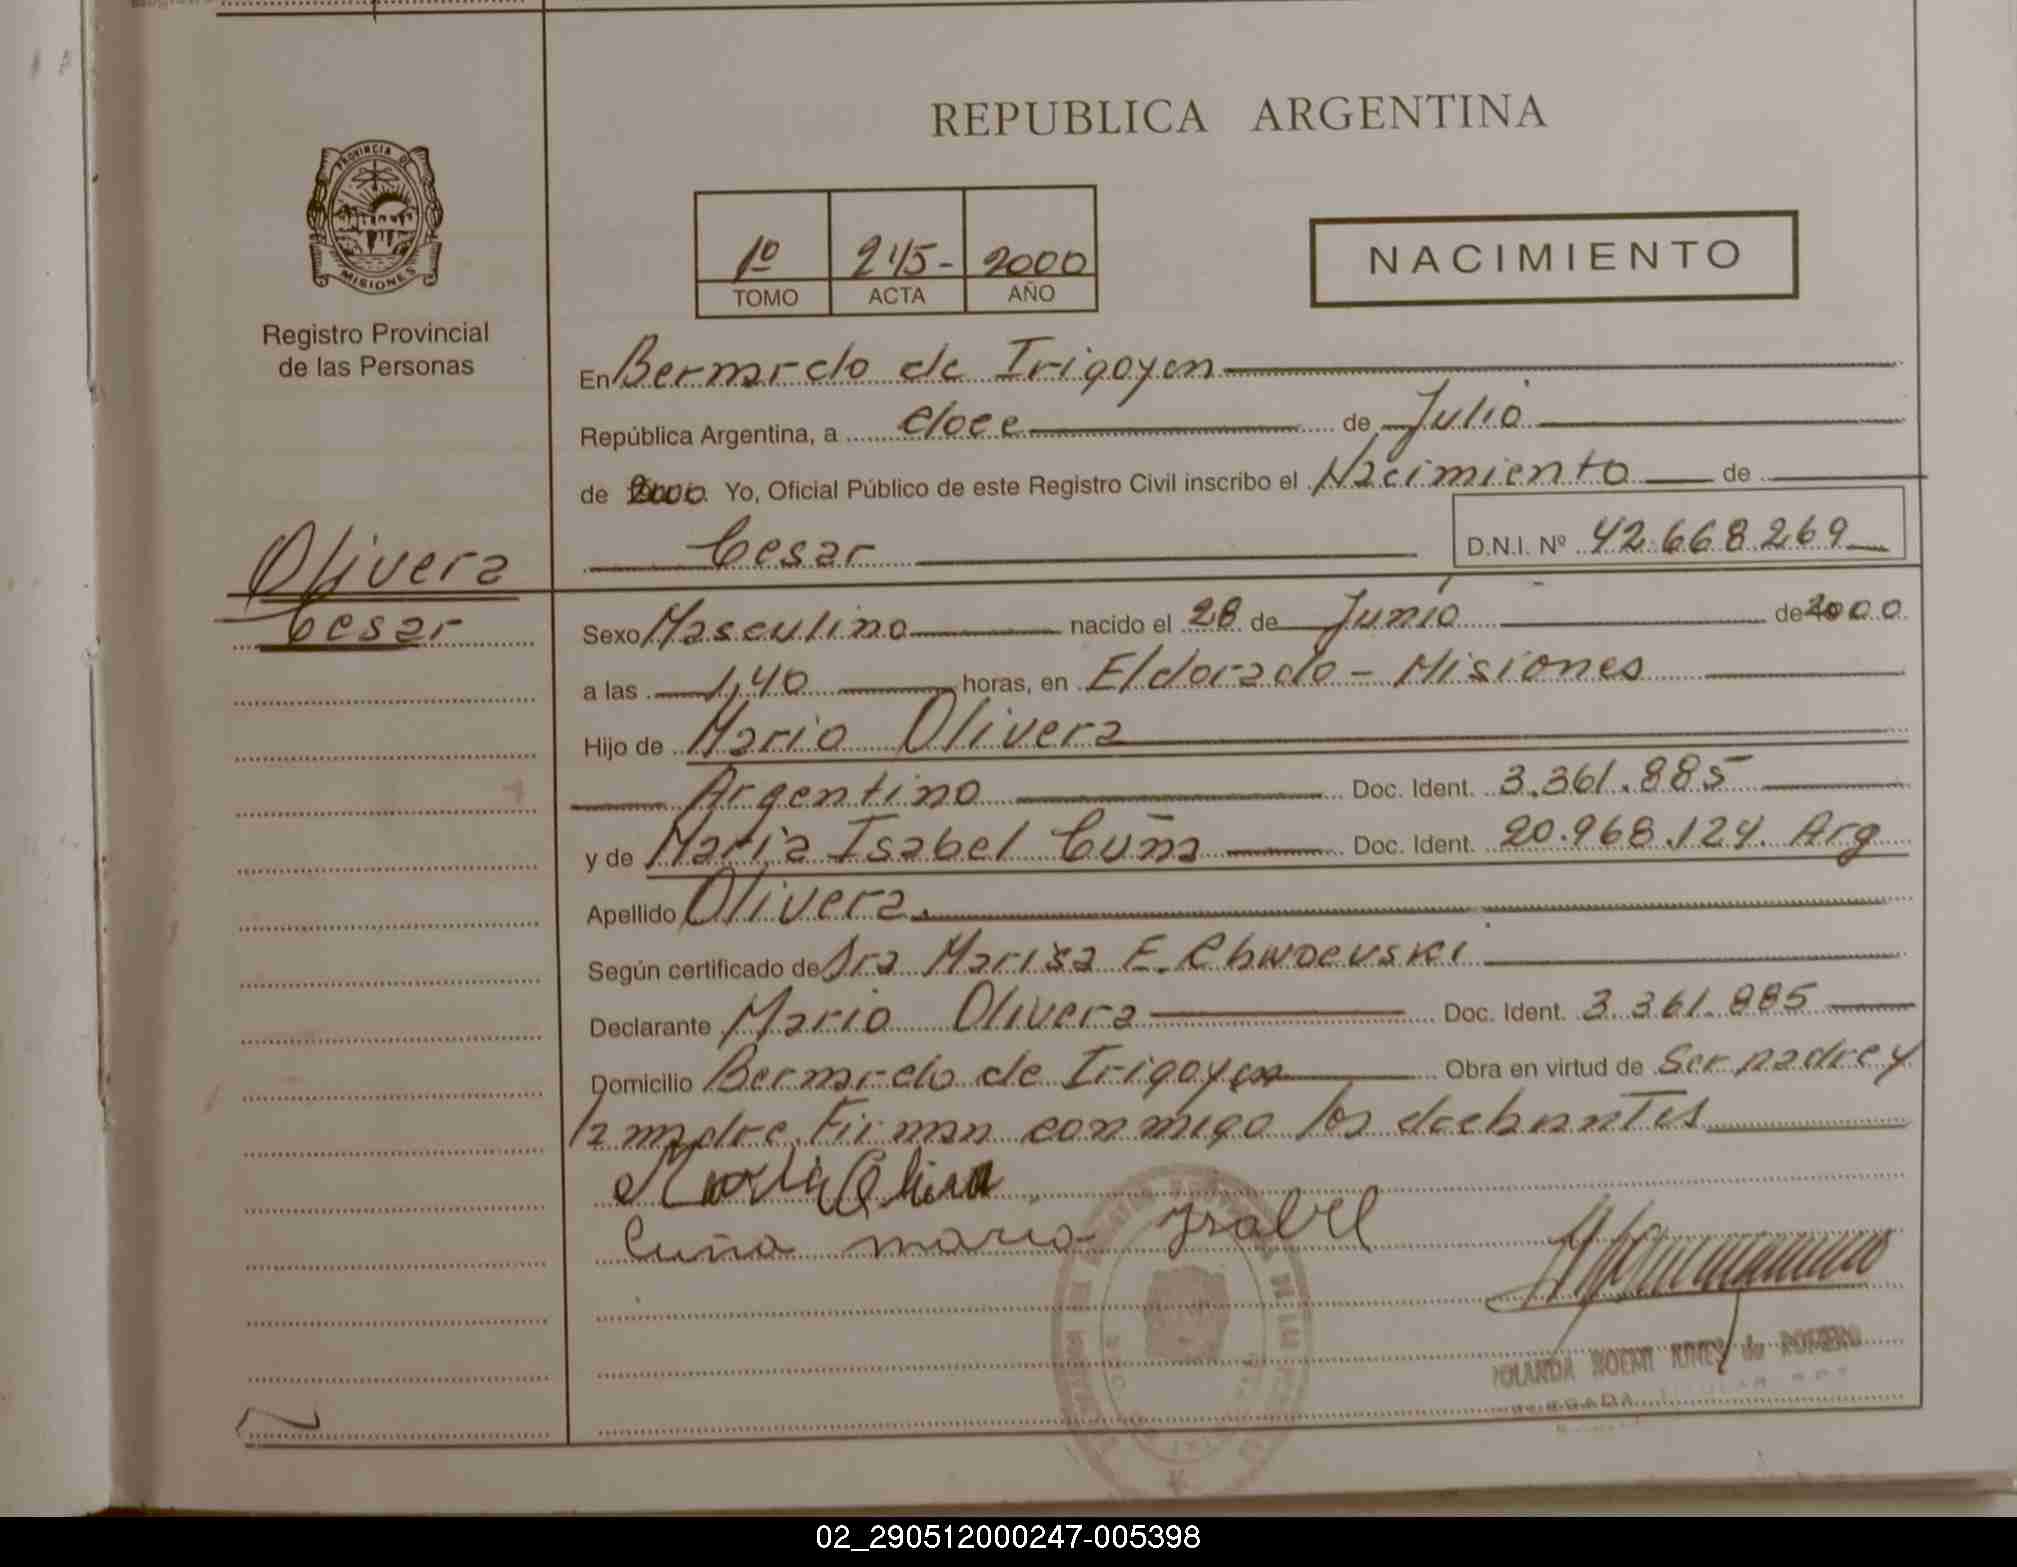 REPUBLICA ARGENTINA
PROVINCIA DE
MISIONES
Registro Provincial
de las Personas
1º 245- 2000
TOMO ACTA AÑO
NACIMIENTO
En Bernardo de Irigoyen
República Argentina, a doce de Julio
de 2000. Yo, Oficial Público de este Registro Civil inscribo el Nacimiento de
Cesar D.N.I. Nº 42.668.269
Olivera
Cesar
Sexo Masculino nacido el 28 de Junio de 2000
a las 1,40 horas, en Eldorado - Misiones
Hijo de Mario Olivera
Argentino Doc. Ident. 3.361.885
y de Maria Isabel Cuña Doc. Ident. 20.968.124. Arg
Apellido Olivera.
Según certificado de Dra Marisa E.
Declarante Mario Olivera Doc. Ident. 3.361.885
Domicilio Bernardo de Irigoyen Obra en virtud de Ser padre y
la madre. Firman conmigo los
Cuña maria Ysabel
YOLANDA NOEMI de ROMERO
02_290512000247-005398